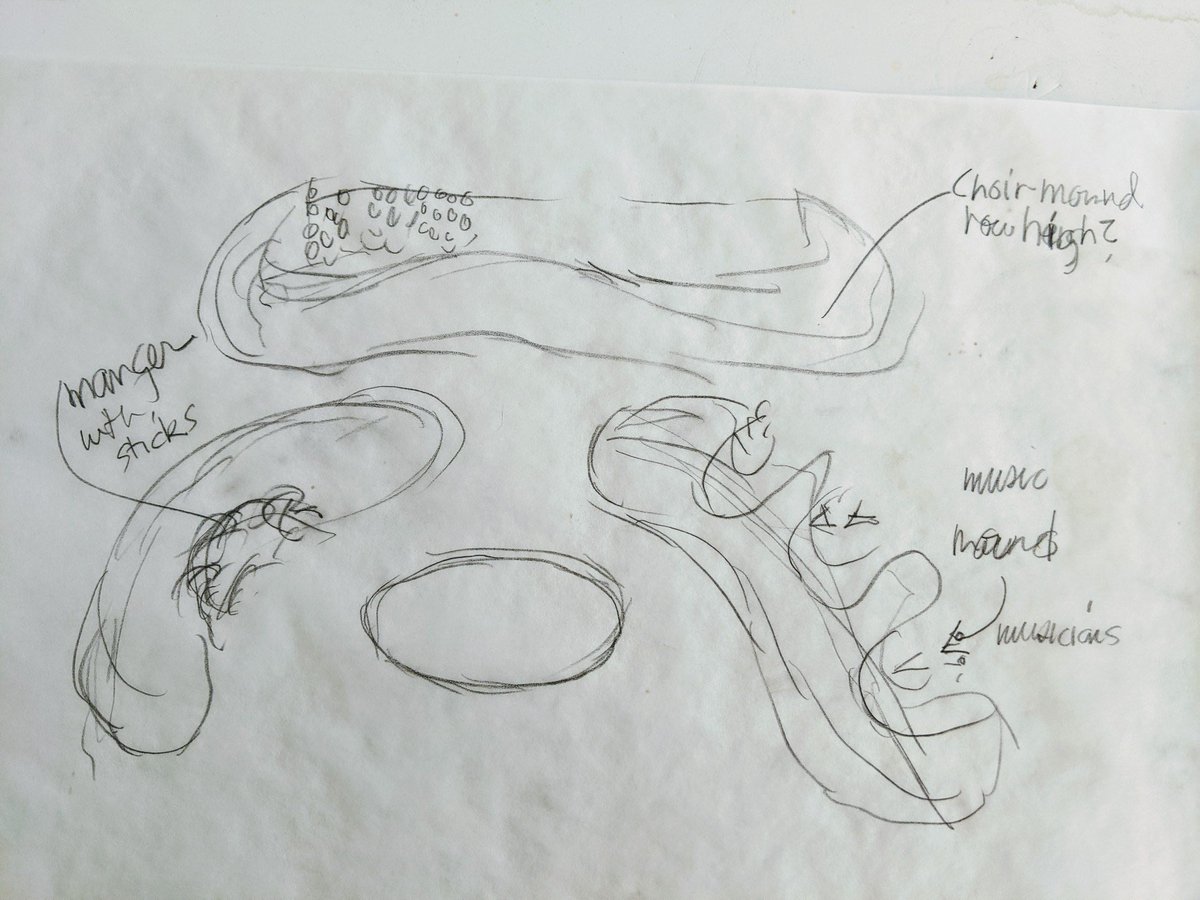 Choir-mound
how high?
manger
with
sticks
music
mound
musicians